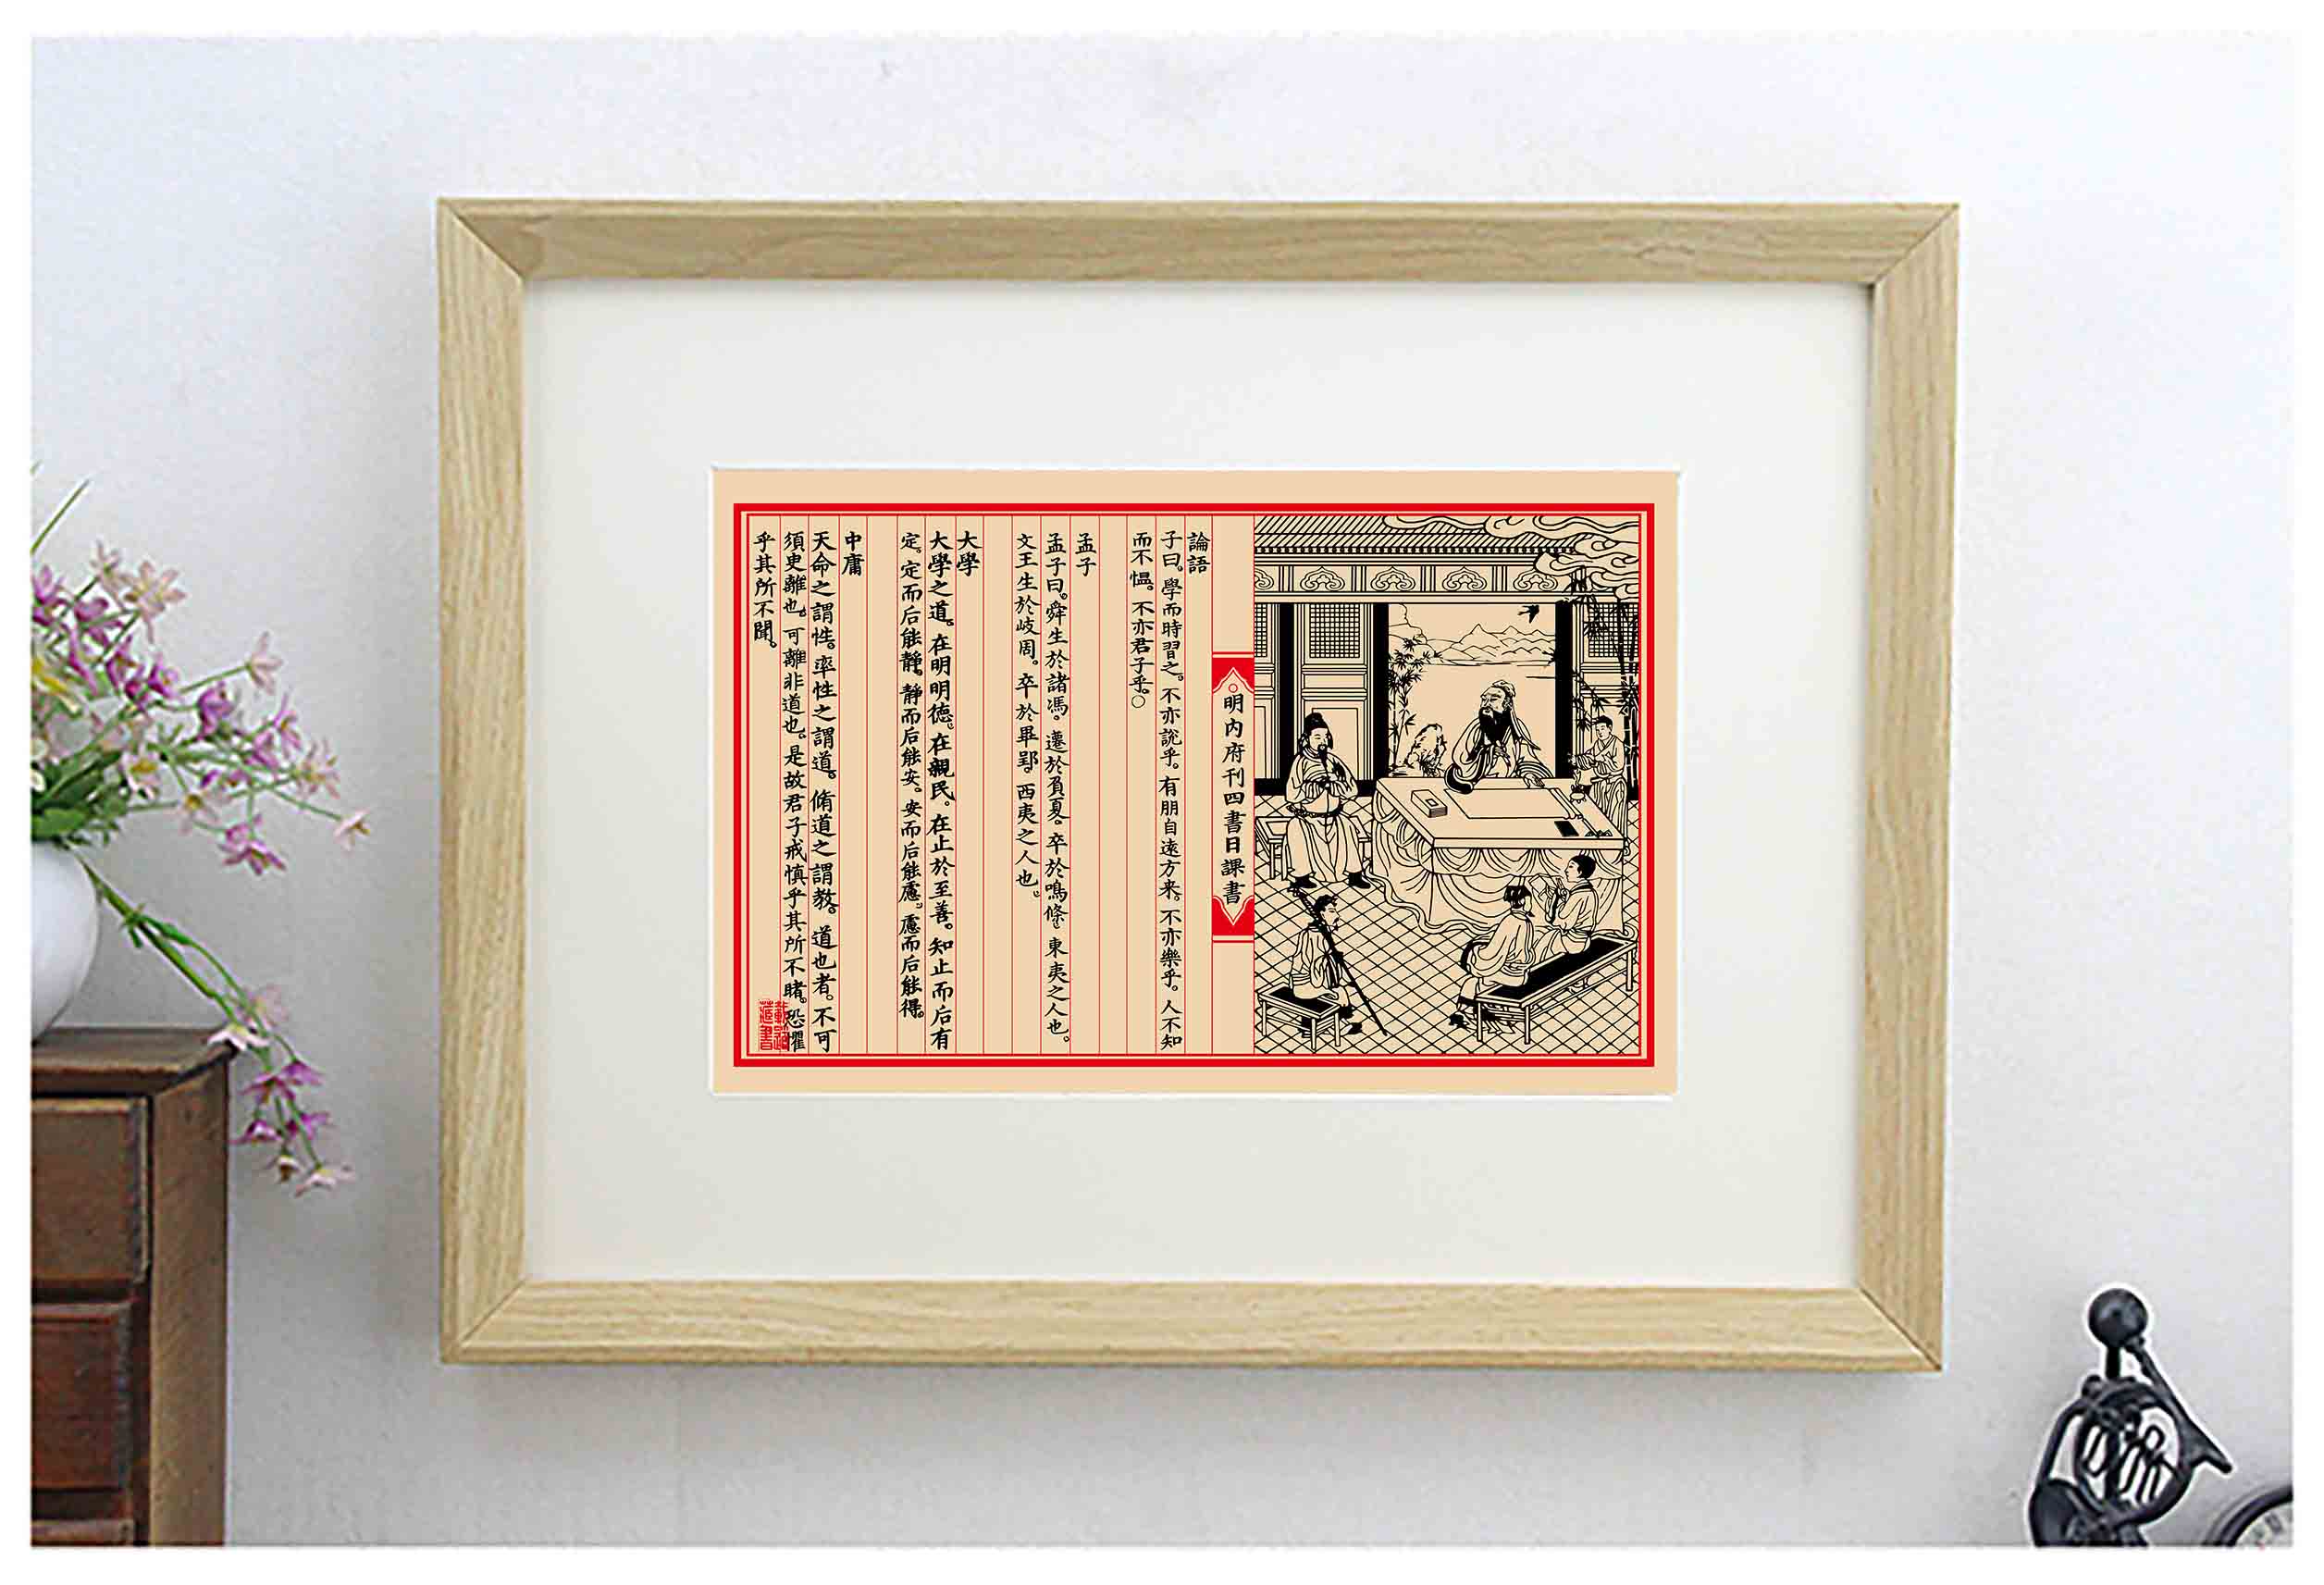 明内府刊四書日課書
論語
子曰。學而時習之。不亦說乎。有朋自遠方来。不亦樂乎。人不知
而不愠。不亦君子乎。○
孟子
孟子曰。舜生於諸馮。遷於負夏。卒於鳴條。東夷之人也。
文王生於岐周。卒於畢郢。西夷之人也。
大學
大學之道。在明明德。在親民。在止於至善。知止而后有
定。定而后能靜。靜而后能安。安而后能慮。慮而后能得。
中庸
天命之謂性。率性之謂道。脩道之謂教。道也者。不可
須臾離也。可離非道也。是故君子戒慎乎其所不睹。恐懼
乎其所不聞。